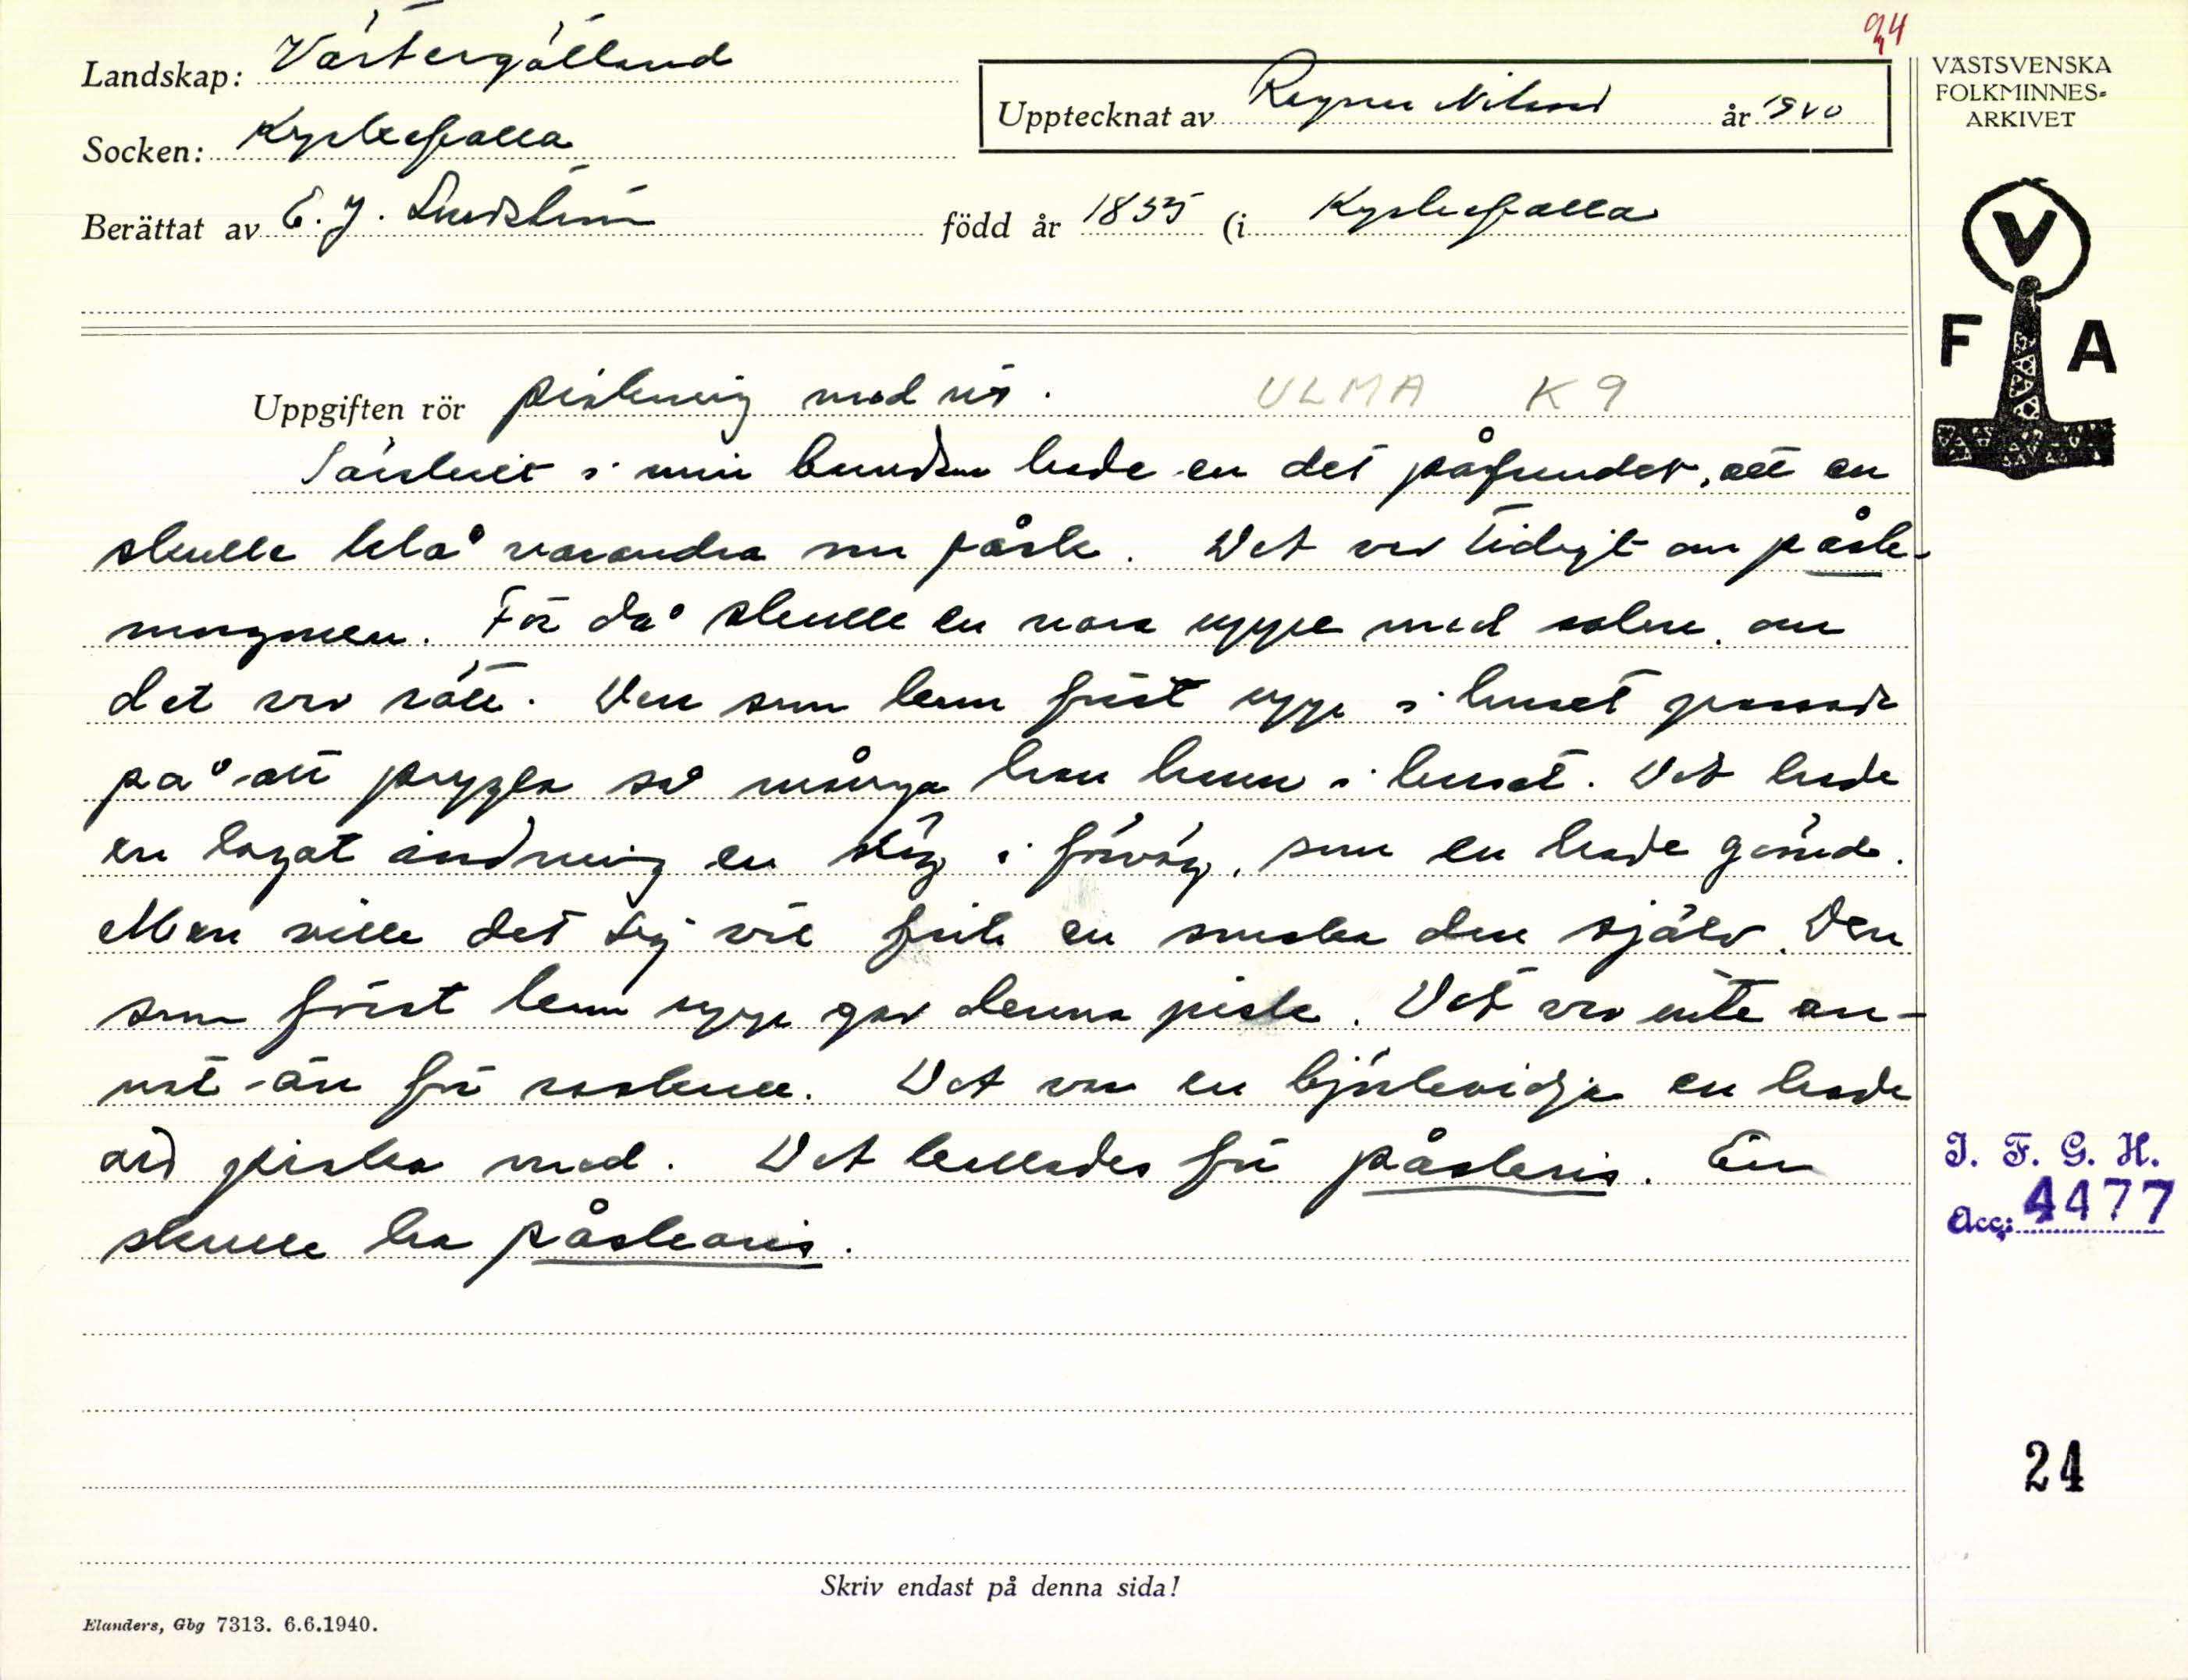 94
Landskap: Västergötland
Socken: Kyrkefalla
Upptecknat av Ragnar Nilsson år 1940
Berättat av E. J. Lindström född år 1855 (i Kyrkefalla
VÄSTSVENSKA
FOLKMINNES-
ARKIVET
V
F A
Uppgiften rör piskning med ris.
ULMA K 9
Särskilt i min barndom hade en det påfundet, att en
skulle klå varandra om påsk. Det var tidigt om påsk-
morgonen. För då skulle en vara uppe med solen, om
det var rätt. Den som kom först upp i huset passade
på att prygla så många han hann i huset. Det hade
en lagat ändning en däg i förväg, som en hade gömd.
Men ville det sig väl fick en smaka den själv. Den
som först kom upp gav denna piska. Det var inte an-
nat än för roskull. Det var en björkvidja en hade
att piska med. Det kallades för påskris. En
skulle ha påskaris.
I. F. G. H.
Acc: 4477
24
Skriv endast på denna sida!
Elanders, Gbg 7313. 6.6.1940.